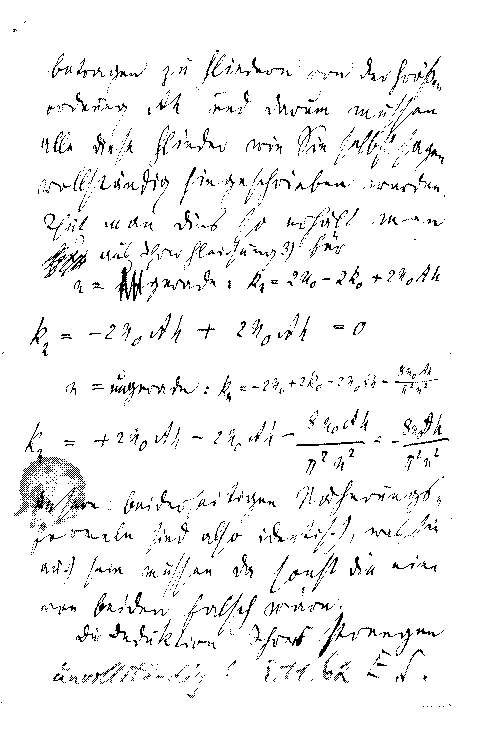 betragen zu Gliedern von der Größen-
ordnung ch und darum müssen
alle diese Glieder wie Sie selbst sagen
vollständig hingeschrieben werden.
Thut man dies so erhält man
aus Ihrer Gleichung 3) für
n = gerade: k₂ = 2u₀ - 2k₀ + 2u₀ch
k₂ = -2u₀ch + 2u₀ch = 0
n = ungerade: k₂ = -2u₀ + 2k₀ - 2u₀ch - 8u₀ch/π²n²
k₂ = +2u₀ch - 2u₀ch - 8u₀ch/π²n² = - 8u₀ch/π²n²
Unsere beiderseitigen Näherungs-
formeln sind also identisch, was sie
auch sein müssen da sonst die eine
von beiden falsch wäre.
Die Deduktion Ihres strengen
unvollständig! E. S.